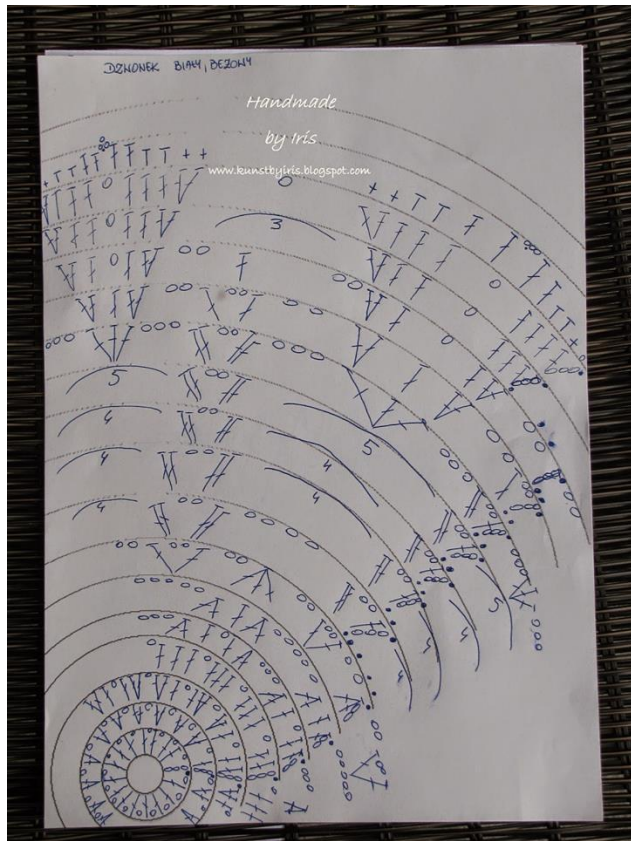 DZWONEK BIAŁY, BEŻOWY
Handmade
by Iris
www.kunstbyiris.blogspot.com
3
5
5
4
4
4
4
5
4
4
4